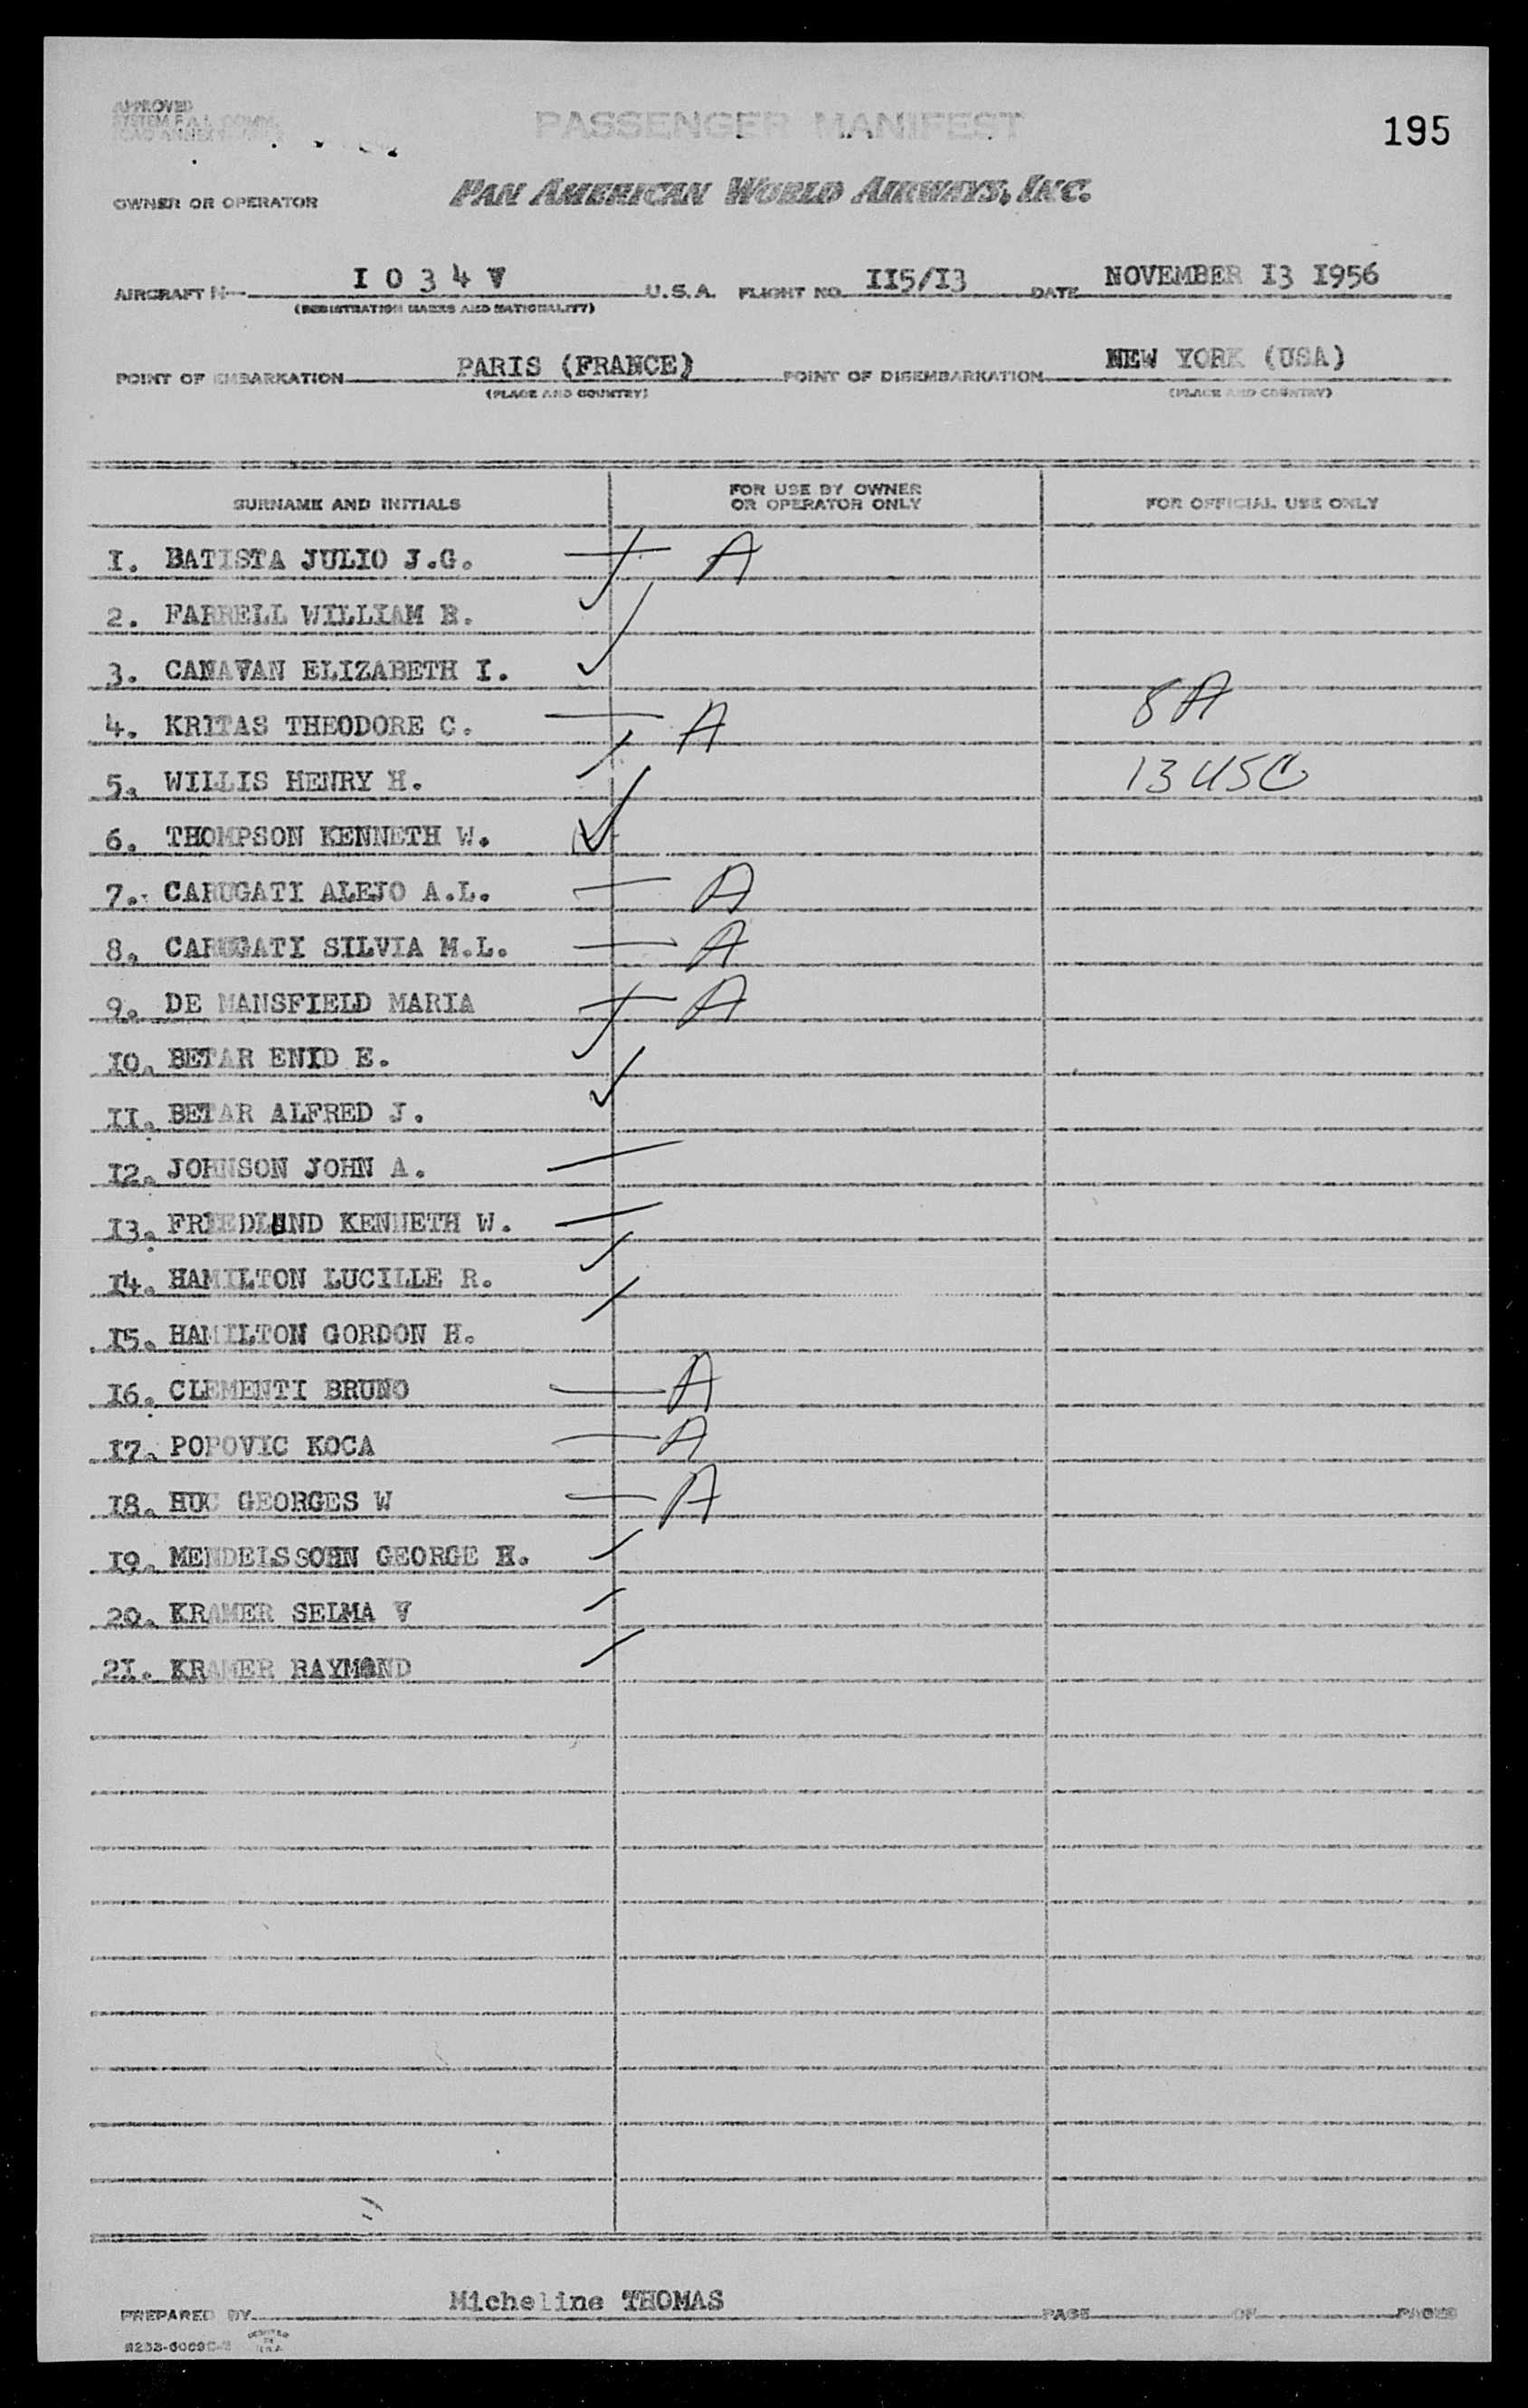 APPROVED
SYSTEM F.A.L. COMM.
PASSENGER MANIFEST
195
OWNER OR OPERATOR PAN AMERICAN WORLD AIRWAYS, INC.
AIRCRAFT N- I 0 3 4 V U.S.A. FLIGHT NO. II5/I3 DATE NOVEMBER I3 I956
(REGISTRATION MARKS AND NATIONALITY)
POINT OF EMBARKATION PARIS (FRANCE) POINT OF DISEMBARKATION NEW YORK (USA)
(PLACE AND COUNTRY) (PLACE AND COUNTRY)
SURNAME AND INITIALS FOR USE BY OWNER OR OPERATOR ONLY FOR OFFICIAL USE ONLY
I. BATISTA JULIO J.G. A
2. FARRELL WILLIAM R.
3. CANAVAN ELIZABETH I.
4. KRITAS THEODORE C. A 8 A
5. WILLIS HENRY H. 13 USC
6. THOMPSON KENNETH W.
7. CARUGATI ALEJO A.L. A
8. CARUGATI SILVIA M.L. A
9. DE MANSFIELD MARIA A
I0. BETAR ENID E.
II. BETAR ALFRED J.
I2. JOHNSON JOHN A.
I3. FRIEDLUND KENNETH W.
I4. HAMILTON LUCILLE R.
I5. HAMILTON GORDON H.
I6. CLEMENTI BRUNO A
I7. POPOVIC KOCA A
I8. HUC GEORGES W A
I9. MENDELSSOHN GEORGE H.
20. KRAMER SELMA V
2I. KRAMER RAYMOND
PREPARED BY Micheline THOMAS PAGE OF PAGES